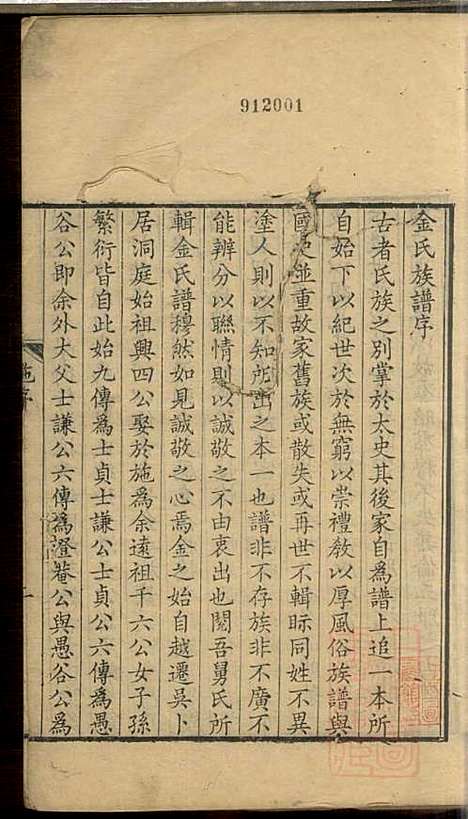 912001
金氏族譜序
古者氏族之别掌於太史其後家自為譜上追一本所
自始下以紀世次於無窮以崇禮教以厚風俗族譜與
國史並重故家舊族或散失或再世不輯眎同姓不異
塗人則以不知所出之本一也譜非不存族非不廣不
能辨分以聯情則以誠敬之不由衷出也閱吾舅氏所
輯金氏譜穆然如見誠敬之心焉金之始自越遷吳卜
居洞庭始祖興四公娶於施為余遠祖千六公女子孫
繁衍皆自此始九傳為士貞士謙公士貞公六傳為愚
谷公即余外大父士謙公六傳為澄菴公與愚谷公為
施序